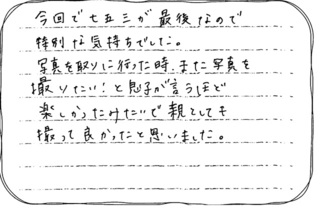 今回で七五三が最後なので
特別な気持ちでした。
写真を取りに行った時、また写真を
撮りたい！と息子が言うほど
楽しかったみたいで親としても
撮って良かったと思いました。